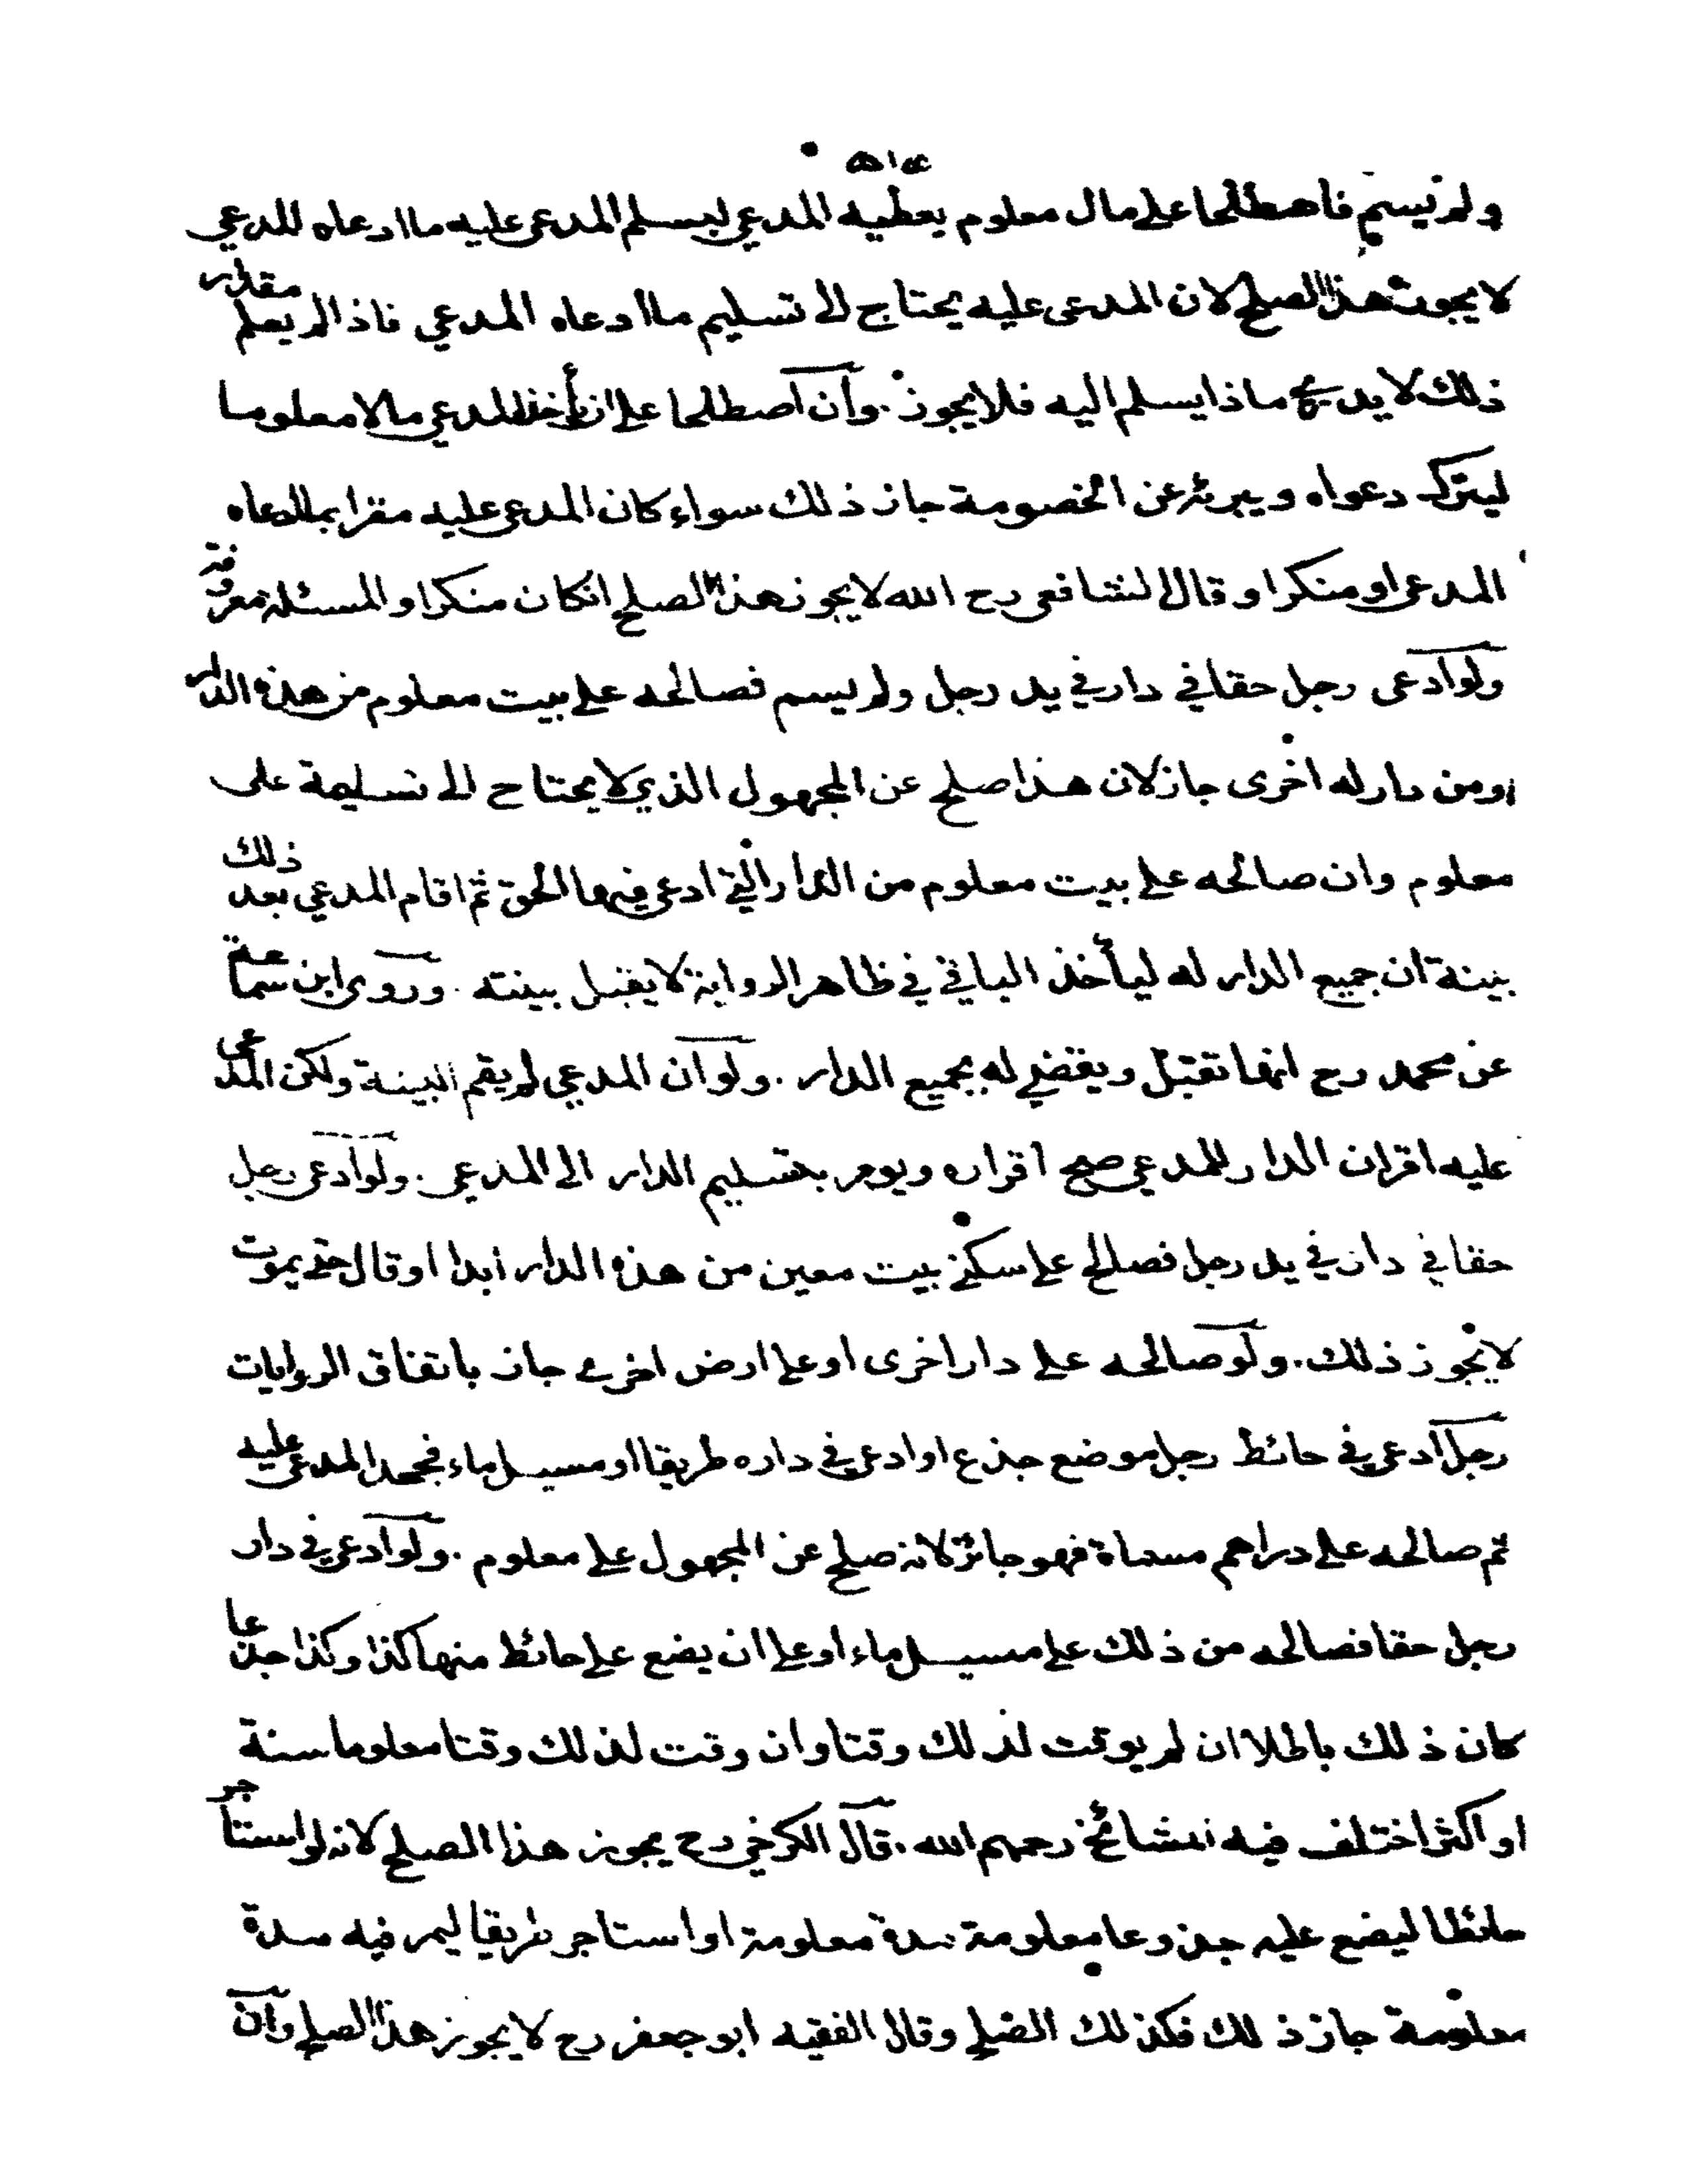 ولم يسم فاصطلحا على مال معلوم يعطيه المدعي ليسلم المدعى عليه ما ادعاه للمدعي
لا يجوز هذا الصلح لان المدعى عليه يحتاج الى تسليم ما ادعاه المدعي فاذا لم يعلم مقدار
ذلك لا يدري ماذا يسلم اليه فلا يجوز . وان اصطلحا على ان يأخذ المدعي مالا معلوما
ليترك دعواه ويبرئه عن الخصومة جاز ذلك سواء كان المدعى عليه مقرا بما ادعاه
المدعي او منكرا وقال الشافعي رح الله لا يجوز هذا الصلح انكان منكرا والمسئلة معروفة
ولو ادعى رجل حقا في دار في يد رجل ولم يسم فصالحه على بيت معلوم من هذه الدار
او من دار له اخرى جاز لان هذا صلح عن المجهول الذي لا يحتاج الى تسليمه على
معلوم وان صالحه على بيت معلوم من الدار التي ادعى فيها الحق ثم اقام المدعي بعد ذلك
بينة ان جميع الدار له ليأخذ الباقي في ظاهر الرواية لا يقبل بينته . وروى ابن سماعة
عن محمد رح انها تقبل ويقضى له بجميع الدار . ولو ان المدعي لم يقم البينة ولكن المدعى
عليه اقر ان الدار للمدعي صح اقراره ويومر بتسليم الدار الى المدعي . ولو ادعى رجل
حقا في دار في يد رجل فصالح على سكنى بيت معين من هذه الدار ابدا او قال حتى يموت
لا يجوز ذلك . ولو صالحه على دار اخرى او على ارض اخرى جاز باتفاق الروايات
رجل ادعى في حائط رجل موضع جذع او ادعى في داره طريقا او مسيل ماء فجحد المدعى عليه
ثم صالحه على دراهم مسماة فهو جائز لانه صلح عن المجهول على معلوم . ولو ادعى في دار
رجل حقا فصالحه من ذلك على مسيل ماء او على ان يضع على حائط منها كذا وكذا جذعا
كان ذلك باطلا ان لم يوقت لذلك وقتا وان وقت لذلك وقتا معلوما سنة
او اكثر اختلف فيه المشائخ رحمهم الله . قال الكرخي رح يجوز هذا الصلح لانه لو استأجر
حائطا ليضع عليه جذوعا معلومة مدة معلومة او استاجر طريقا ليمر فيه مدة
معلومة جاز ذلك فكذلك الصلح وقال الفقيه ابو جعفر رح لا يجوز هذا الصلح وان